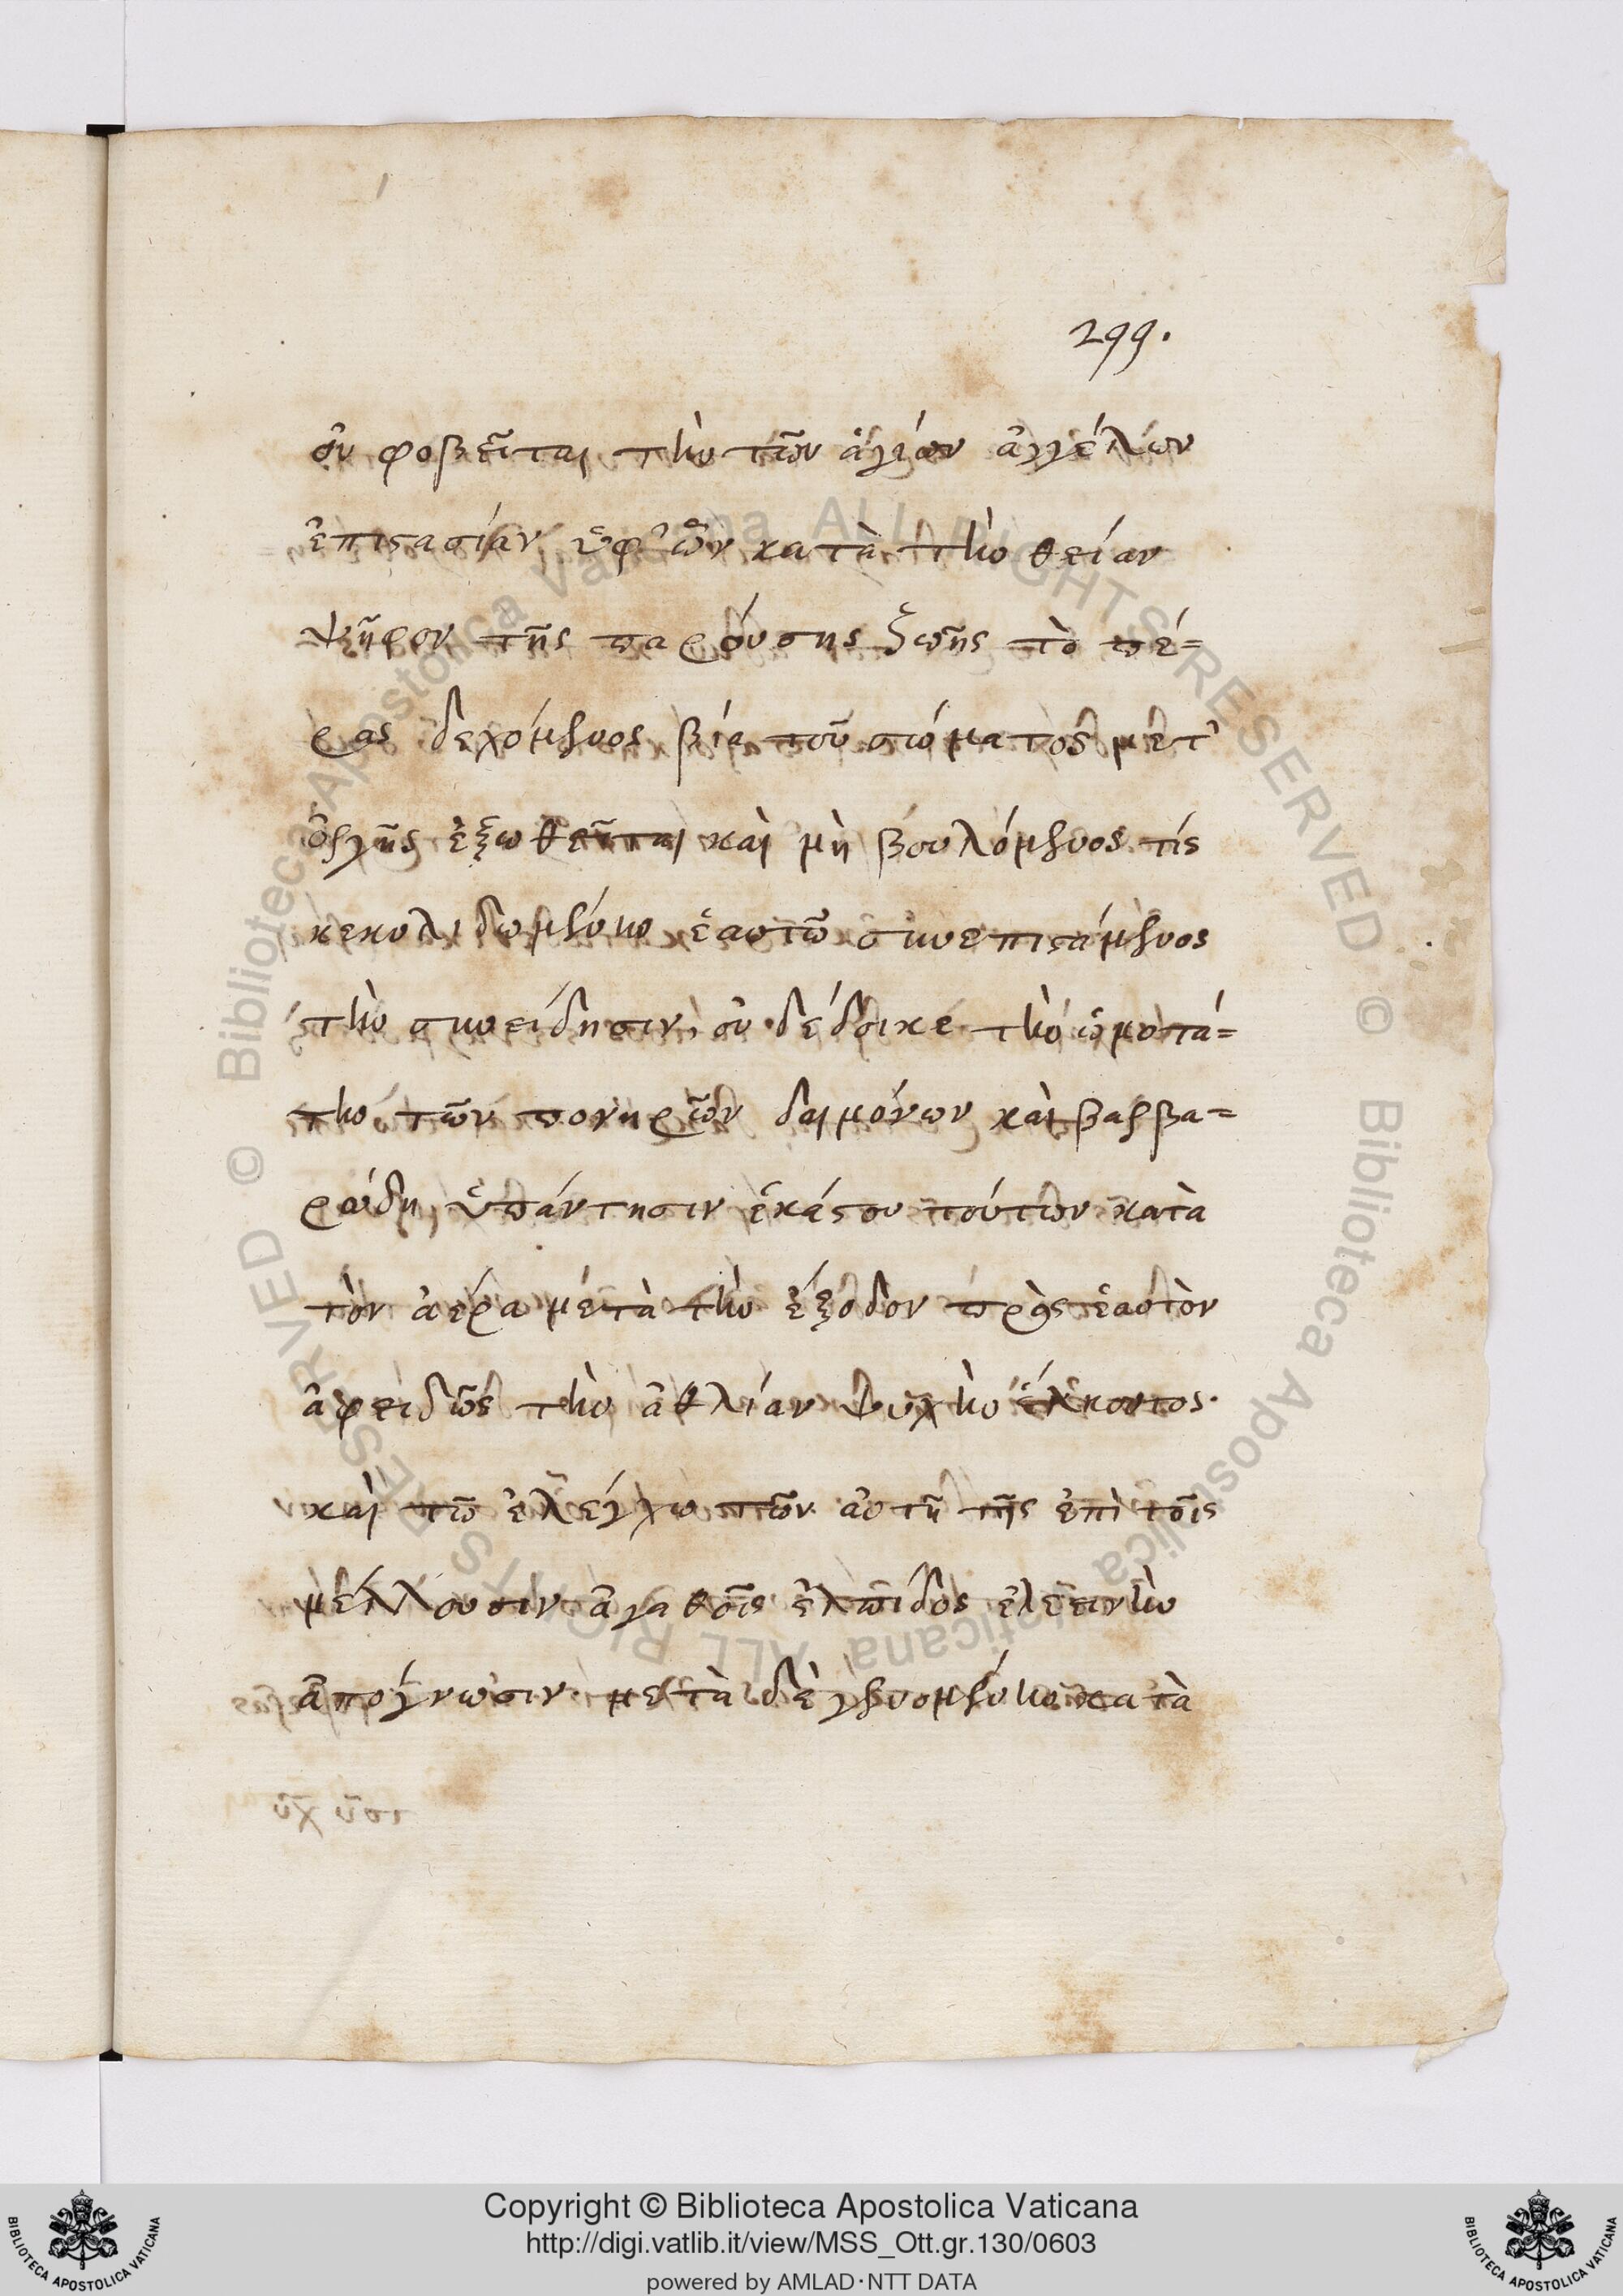 299.
οὐ φοβεῖται τὴν τῶν ἁγίων ἀγγέλων
ἐπιστασίαν ὑφ' ὧν κατὰ τὴν θείαν
ψῆφον τῆς παρούσης ζωῆς τὸ πέ=
ρας δεχόμενος βία τοῦ σώματος μετ'
ὀργῆς ἐξωθεῖται καὶ μὴ βουλόμενος τίς
κεκυλιδωμένην ἑαυτῶ συνεπιστάμενος
τὴν συνείδησιν, οὐ δέδοικε τὴν ὠμοτά=
την τῶν πονηρῶν δαιμόνων καὶ βαρβα=
ρώδη ὑπάντησιν ἑκάστου τούτων κατὰ
τὸν ἀέρα μετὰ τὴν ἔξοδον πρὸς ἑαυτὸν
ἀφειδῶς τὴν ἀθλίαν ψυχὴν ἕλκοντος·
καὶ τῶ ἐλέγχω τῶν αὐτῆ τῆς ἐπὶ τοῖς
μέλλουσιν ἀγαθοῖς ἐλπίδος ἐλεεινὴν
ἀπόγνωσιν· μετὰ δὲ γενομένην κατὰ
Copyright © Biblioteca Apostolica Vaticana
http://digi.vatlib.it/view/MSS_Ott.gr.130/0603
powered by AMLAD·NTT DATA
BIBLIOTECA APOSTOLICA VATICANA
BIBLIOTECA APOSTOLICA VATICANA